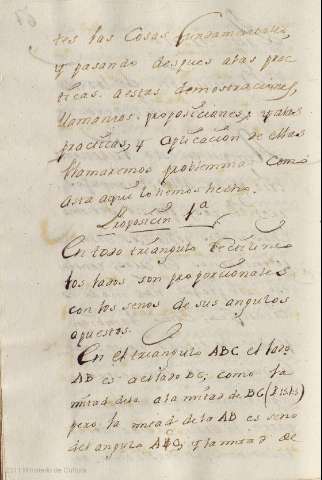 tes las Cosas fundamentales,
y pasando despues alas prac
ticas. aestas demostraciones,
llamamos. proposiciones, yalas
practicas, y aplicacion de ellas
llamaremos problemma. Como
asta aquí lo hemos hecho.
Proposicion 1.ª
En todo triangulo Rectilineo
los lados son proporcionales
con los senos de sus angulos
opuestos.
En el triangulo ABC el lado
AB es al lado BC, como la
mitad dela a la mitad de BC
pero, la mitad de la AB es seno
del angulo y la mitad de
2011 Ministerio de Cultura